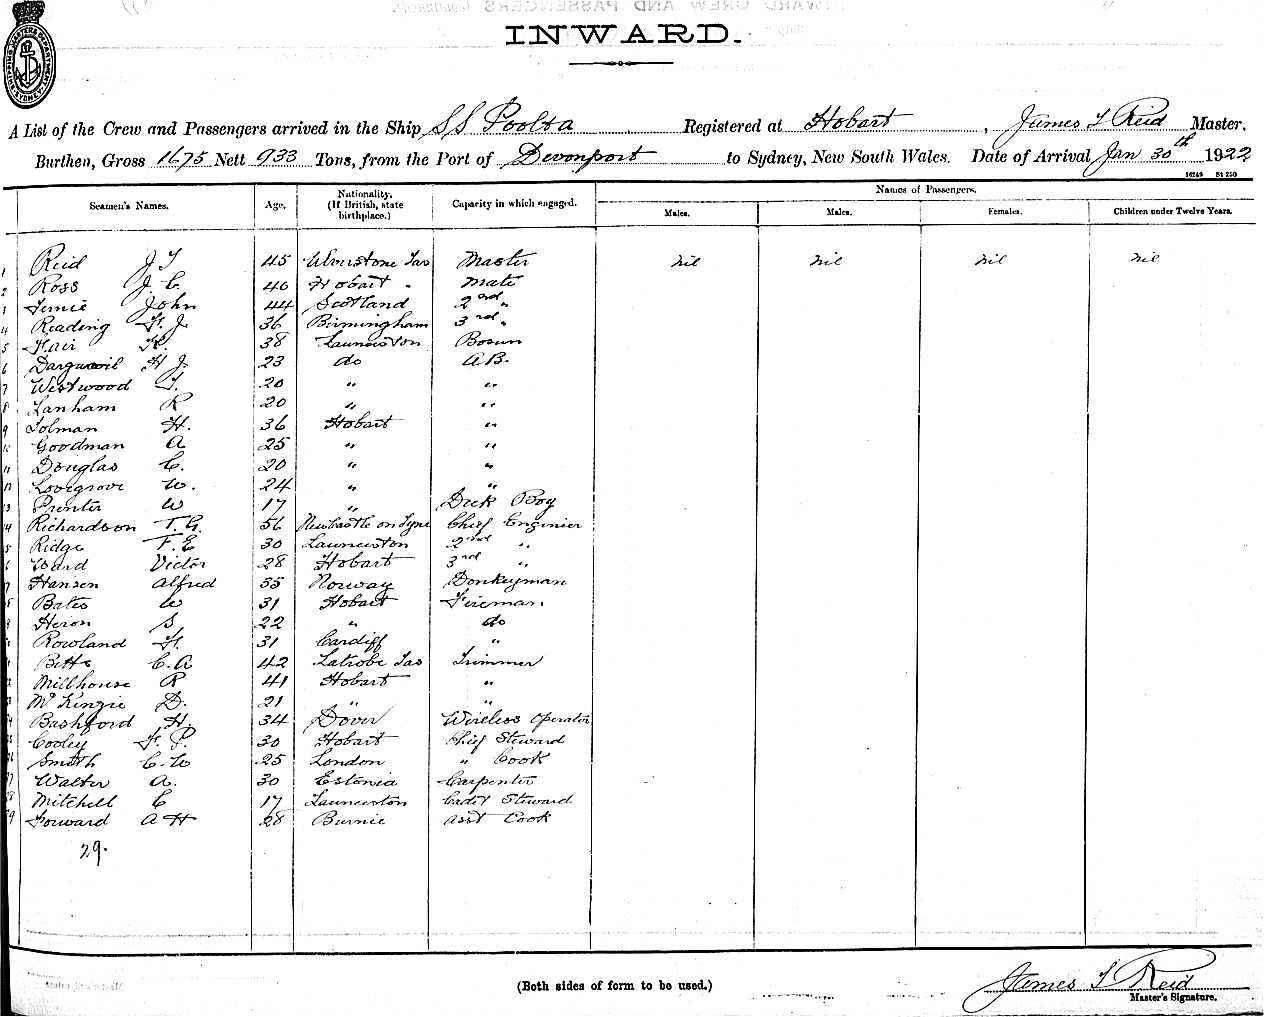 INWARD.
A List of the Crew and Passengers arrived in the Ship SS Poolta Registered at Hobart, James T Reid Master,
Burthen, Gross 1675 Nett 933 Tons, from the Port of Devonport to Sydney, New South Wales. Date of Arrival Jan 30th 1922
16249 St 250
Seamen's Names. Age. Nationality. (If British, state birthplace.) Capacity in which engaged. Names of Passengers.
Males. Males. Females. Children under Twelve Years.
1 Reid J T 45 Ulverstone Tas Master nil nil nil nil
2 Ross J. C. 40 Hobart " Mate
3 John 44 Scotland 2nd "
4 Reading F. J. 36 Birmingham 3rd "
5 Hair 38 Launceston Bosun
6 H J. 23 do A.B.
7 Westwood T. 20 " "
8 Lanham R 20 " "
9 Tolman H. 36 Hobart "
10 Goodman A 25 " "
11 Douglas C. 20 " "
12 Lovegrove W. 24 " "
13 Prenter W 17 " Deck Boy
14 Richardson T. G. 56 Newcastle on Tyne Chief Engineer
15 Ridge F. E 30 Launceston 2nd "
16 Ward Victor 28 Hobart 3rd "
17 Hansen Alfred 55 Norway Donkeyman
18 Bates W 31 Hobart Fireman
19 Heron S 22 " do
20 Rowland F. 31 Cardiff "
21 Betts C. A 42 Latrobe Tas Trimmer
22 Millhouse R 41 Hobart "
23 McKenzie D. 21 " "
24 Bashford H. 34 Dover Wireless Operator
25 Cooley F. P. 30 Hobart Chief Steward
26 Smith C. W 25 London " Cook
27 Walter A. 30 Estonia Carpenter
28 Mitchell C 17 Launceston Cadet Steward
29 Forward A H 28 Burnie asst Cook
29.
(Both sides of form to be used.)
James T Reid
Master's Signature.